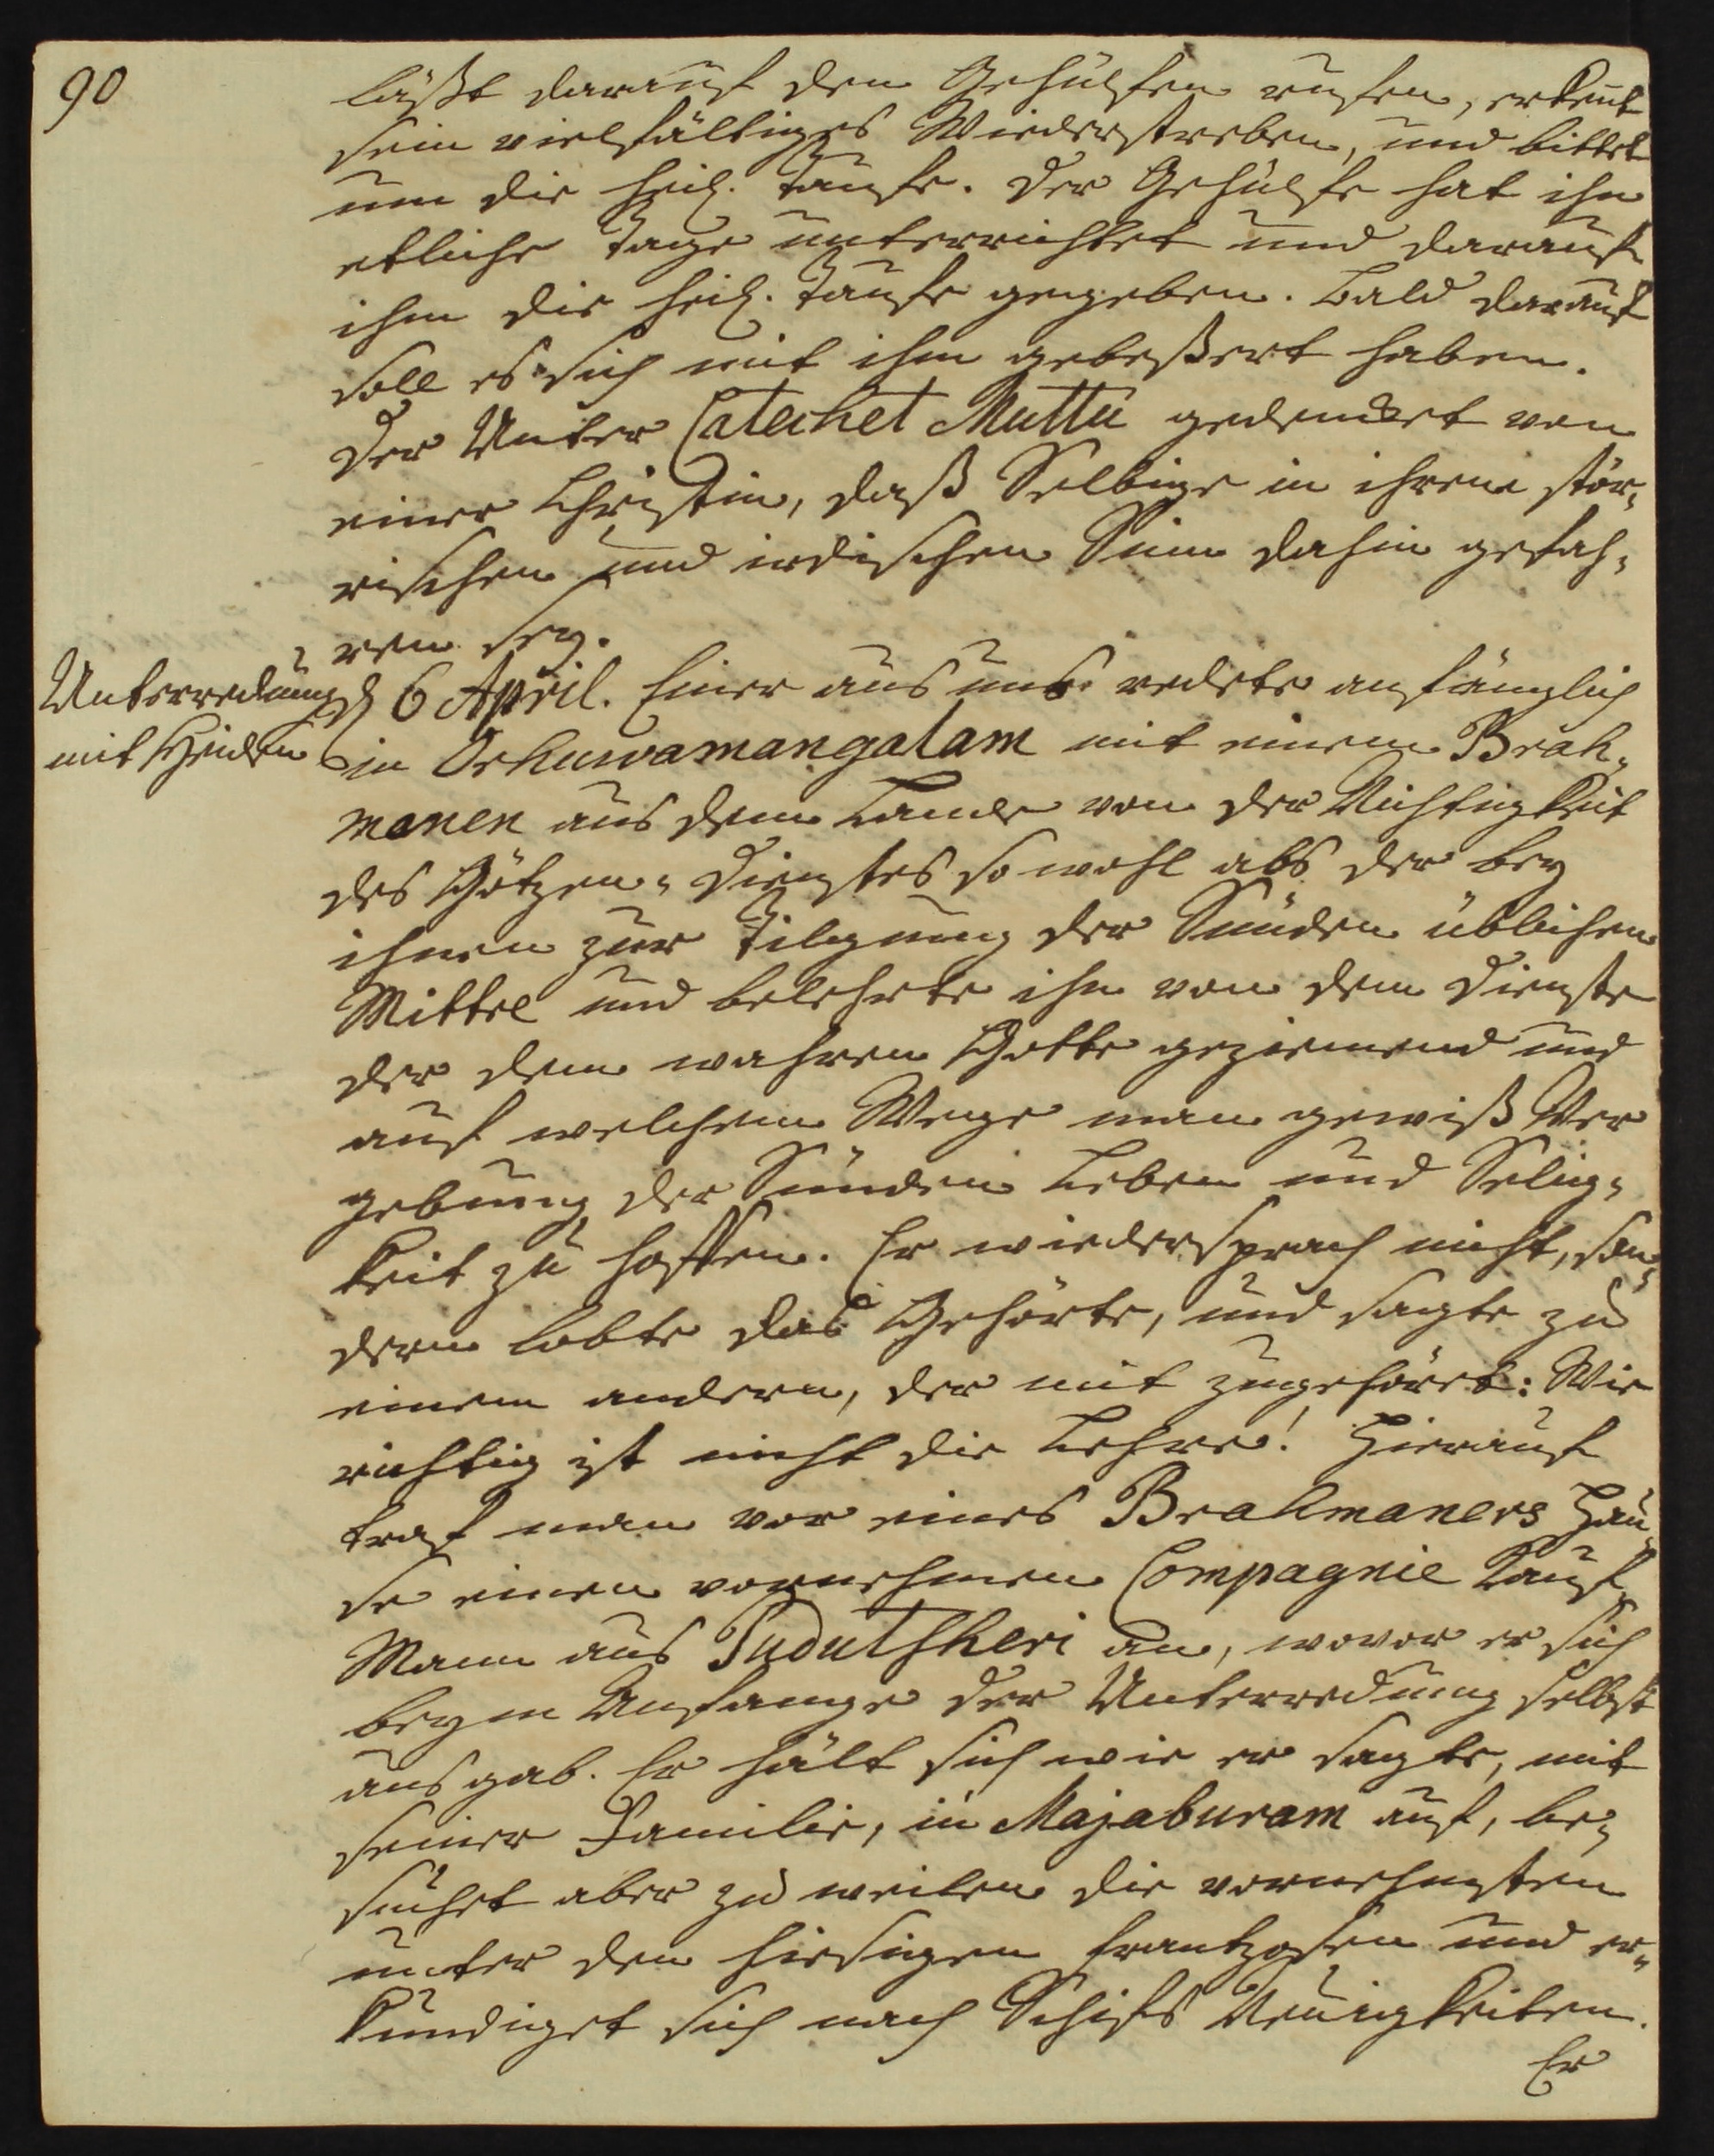 90
läßt darauf den Gehülfen rufen, erkent
sein vielfältiges Wiederstreben, und bittet
um die heil. Taufe. Der Gehülfe hat ihn
etliche Tage unterrichtet und darauf
ihm die heil. Taufe gegeben. Bald darauf
soll es sich mit ihm gebeßert haben.
Der Unter Catechet Muttu gedencket von
einer Christin, daß Selbige in ihrem stör¬
rischen und irdischen Sinn dahin gefah¬
ren sey.
Unterredung
mit Heiden
d 6 April. Einer aus uns redete anfänglich
in Oekuwamangalam mit einem Brah¬
manen aus dem Lande von der Nichtigkeit
des Götzen¬Dienstes so wohl als der bey
ihnen zur Tilgung der Sünden üblichen
Mittel und belehrte ihn von dem Dienste
der dem wahren Gotte geziemend und
auf welchem Wege man gewiß Ver
gebung der Sünden Leben und Selig¬
keit zu hoffen. Er wiedersprach nicht, son¬
dern lobte das Gehörte, und sagte zu
einem andern, der mit zugehöret: Wie
richtig ist nicht die Lehre! Hierauf
traf man vor eines Brahmaners Hau¬
se einen vornehmen Compagnie Kauf¬
Mann aus Pudutsheri an, wovor er sich
beym Anfange der Unterredung selbst
ausgab. Er hält sich wie er sagte, mit
seiner Familie, in Majaburam auf, be¬
suchet aber zu weilen die vornehmsten
unter den hiesigen Frantzosen und er¬
kundiget sich nach Schifs Neuigkeiten.
Er